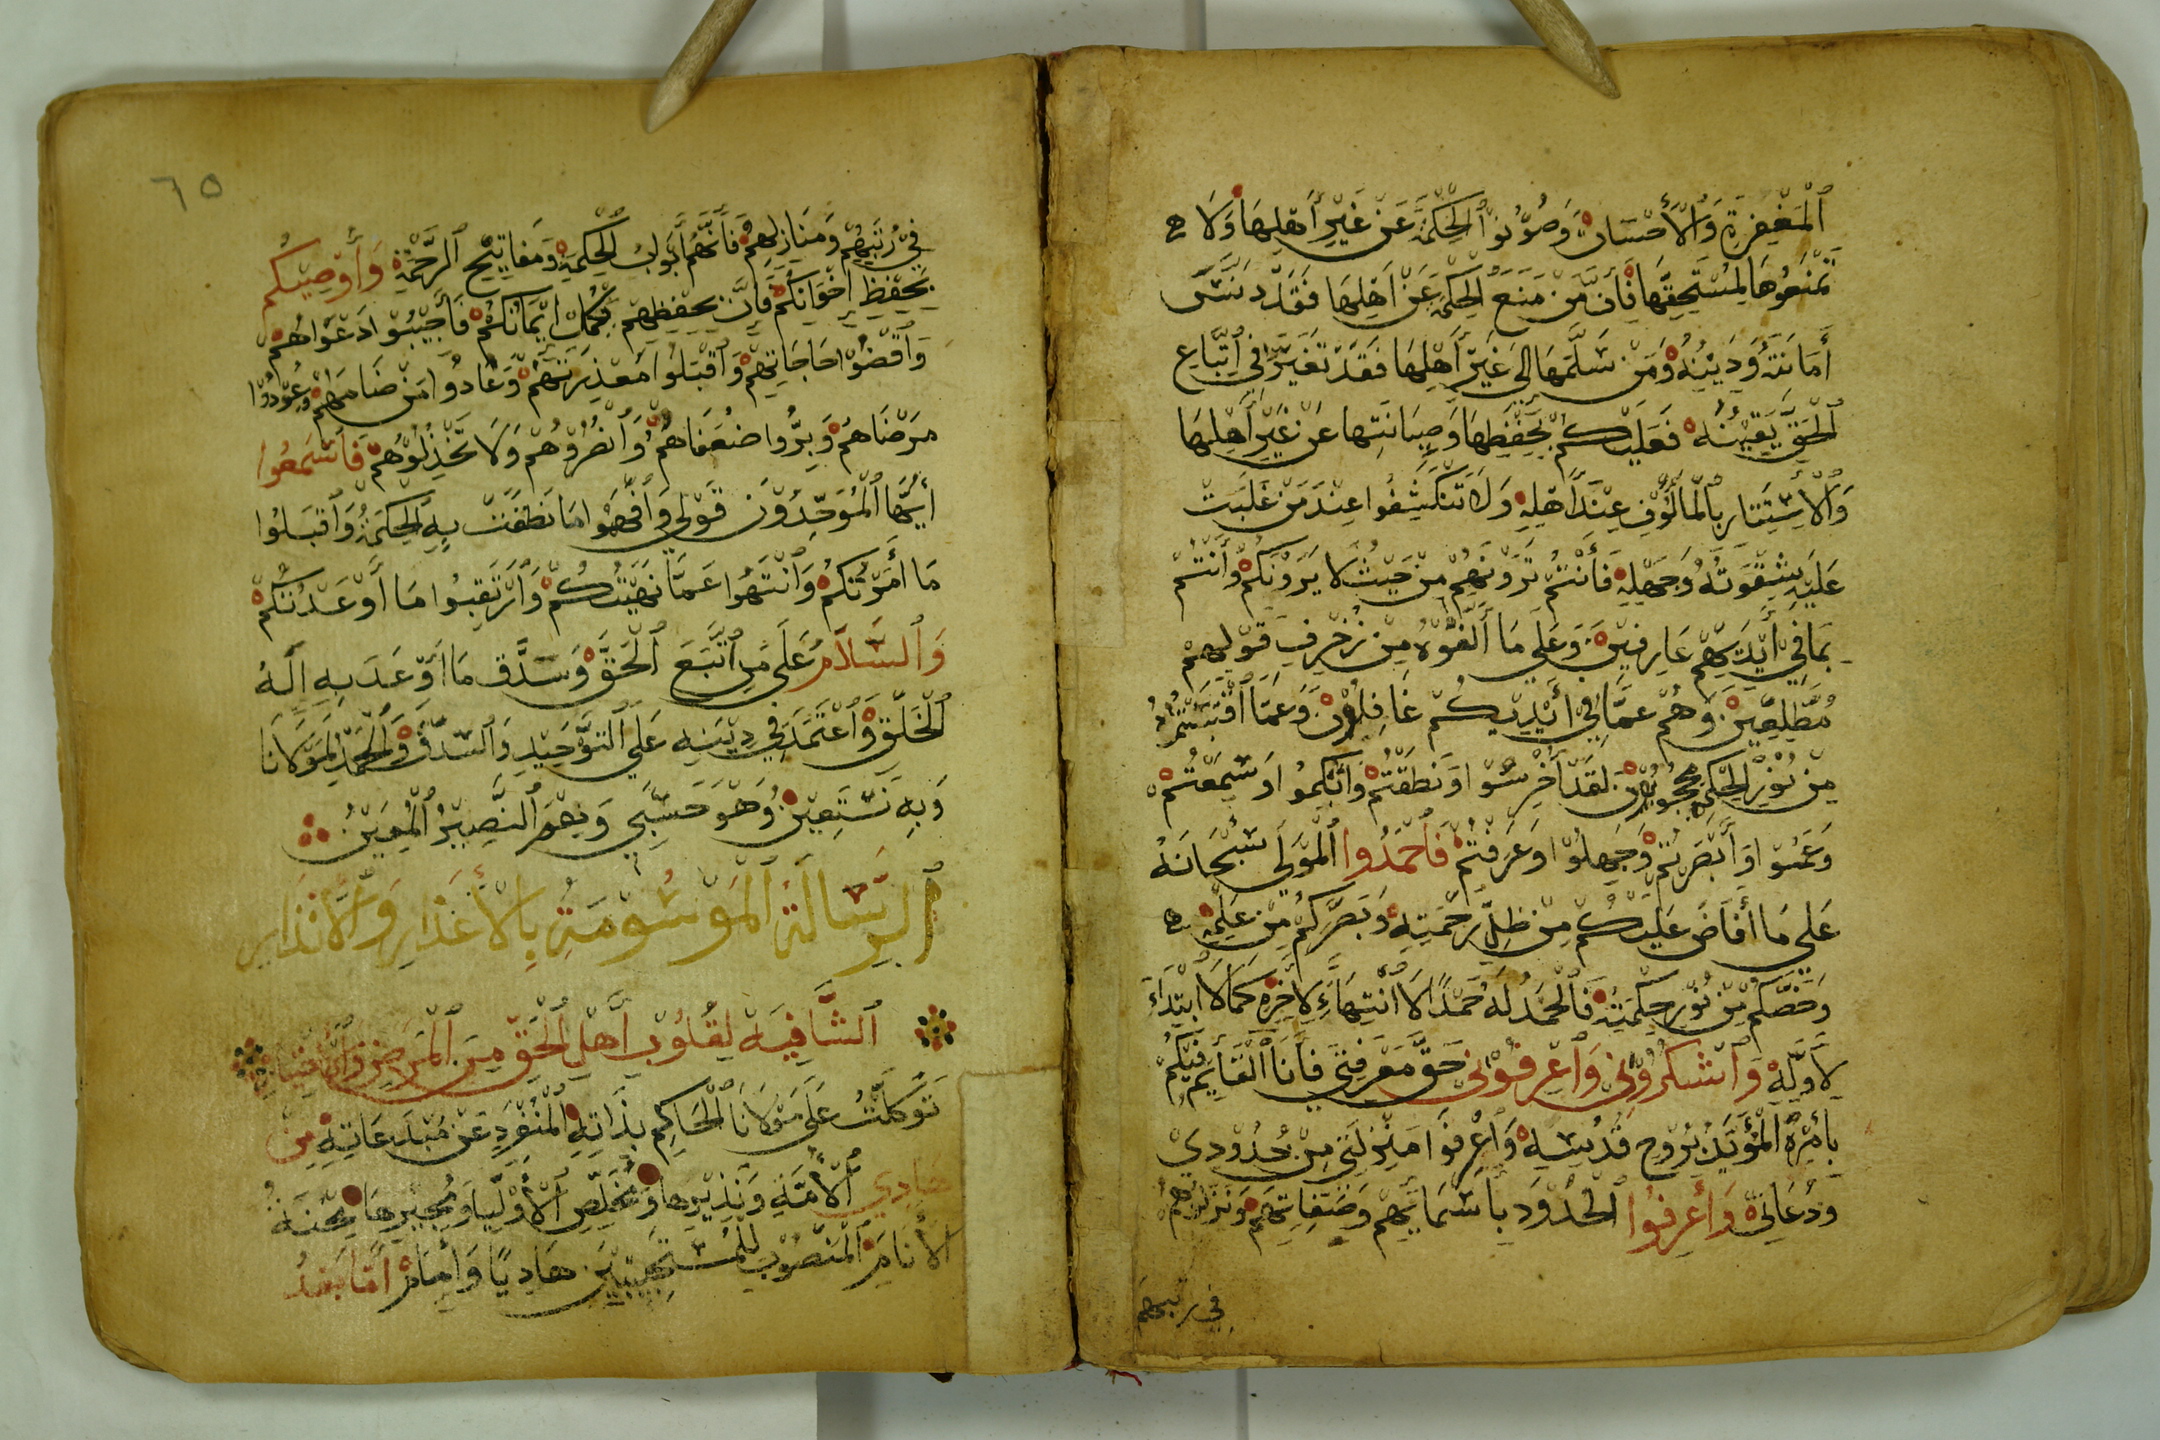 ٱلْمَغْفِرَةِ وَٱلْأَحْسَانْ وَصُوْنُوْا ٱلْحِكْمَةَ عَنْ غَيْرِ أَهْلِهَا وَلَا
تَمْنَعُوْهَا لِمُسْتَحِقِّهَا فَأِنَّ مَنْ مَنَعَ ٱلْحِكْمَةَ عَنْ أَهْلِهَا فَقَدْ دَنَّسَ
أَمَانَتَهُ وَدِيْنَهُ وَمَنْ سَلَّمَهَا إِلَى غَيْرِ أَهْلِهَا فَقَدْ تَغَيَّرَ فِي ٱتِّبَاعِ
ٱلْحَقِّ يَقِيْنُهُ فَعَلَيْكُمْ بِحِفْظِهَا وَصِيَانَتِهَا عَنْ غَيْرِ أَهْلِهَا
وَٱلْأَسْتِتَارِ بِٱلْمَأْلُوْفِ عِنْدَ أَهْلِهِ وَلَا تَنْكَشِفُوْا عِنْدَ مَنْ غَلَبَتْ
عَلَيْهِ شِقْوَتُهُ وَجَهْلِهِ فَأَنْتُمْ تَرَوْنَهُمْ مِنْ حَيْثُ لَا يَرَوْنَكُمْ وَأَنْتُمْ
بِمَا فِي أَيْدِيْهِمْ عَارِفِيْنَ وَعَلَى مَا أَلَّفُوْهُ مِنْ زُخْرِفِ قَوْلِهِمْ
مُطَّلِعِيْنَ وَهُمْ عَمَّا فِي أَيْدِيْكُمْ غَافِلُوْنَ وَعَمَّا ٱقْتَبَسْتُمُوْهُ
مِنْ نُوْرِ ٱلْحِكْمَةِ مَحْجُوْبُوْنَ لَقَدْ أَخْرِسُوْا وَنَطَقْتُمْ وَٱبْكِمُوْا وَسَمِعْتُمْ
وَعَمُوْا وَأَبْصَرْتُمْ وَجَهِلُوْا وَعَرَفْتُمْ فَٱحْمَدُوا ٱلْمَوْلَى سُبْحَانَهُ
عَلَى مَا أَفَاضَ عَلَيْكُمْ مِنْ ظِلِّ رَحْمَتِهِ وَبَصَّرَكُمْ مِنْ عِلْمِهِ
وَخَصَّكُمْ مِنْ نُوْرِ حِكْمَتِهِ فَٱلْحَمْدُ لَهُ حَمْدًا لَا ٱنْتِهَاءَ لِأَخِرِهِ كَمَا لَا ٱبْتِدَاءَ
لِأَوَّلِهِ وَٱشْكُرُوْنِي وَٱعْرِفُوْنِي حَقَّ مَعْرِفَتِي فَأَنَا ٱلْقَايِمُ فِيْكُمْ
بِأَمْرِهِ ٱلْمُؤَيَّدُ بِرُوْحِ قُدْسِهِ وَٱعْرِفُوْا مَنْزِلَتِي مِنْ حُدُوْدِيْ
وَدُعَاتِي وَٱعْرِفُوْا ٱلْحُدُوْدَ بِأَسْمَايِهِمْ وَصِفَاتِهِمْ وَنَزِّلُوْهُمْ
في رتبهم
٦٥
فِيْ رُتَبِهِمْ وَمَنَازِلِهِمْ فَأَنَّهُمْ أَبْوَابُ ٱلْحِكْمَةِ وَمَفَاتِيْحُ ٱلرَّحْمَةِ وَأُوْصِيْكُمْ
بِحِفْظِ أِخْوَانِكُمْ فَإِنَّ بِحِفْظِهِمْ يَكْمُلُ إِيْمَانُكُمْ فَأَجِيْبُوْا دَعْوَاهُمْ
وَٱقْضُوْا حَاجَاتِهِمْ وَٱقْبَلُوْا مَعْذِرَتَهُمْ وَعَادُوْا مَنْ ضَامَهُمْ وَعُوْدُوْا
مَرْضَاهُمْ وَبِرُّوا ضُعَفَاهُمْ وَٱنْصُرُوْهُمْ وَلَا تَخْذِلُوْهُمْ فَٱسْمَعُوا
أَيُّهَا ٱلْمُوَحِّدُوْنَ قَوْلِي وَٱفْهَمُوْا مَا نَطَقَتْ بِهِ ٱلْحِكْمَةُ وَٱقْبَلُوْا
مَا أَمَرْتُكُمْ وَٱنْتَهُوْا عَمَّا نَهَيْتُكُمْ وَٱرْتَقِبُوْا مَا أَوْعَدْتُكُمْ
وَٱلسَّلَامُ عَلَى مَنِ ٱتَّبَعَ ٱلْحَقَّ وَسَدَّقَ مَا أَوْعَدَ بِهِ إِلَهُ
ٱلْخَلْقِ وَٱعْتَمَدَ فِي دِيْنِهِ عَلَى ٱلتَّوْحِيْدِ وَٱلسِّدْقِ وَٱلْحَمْدُ لِمَوْلَانَا
وَبِهِ نَسْتَعِيْنُ وَهْوَ حَسْبِي وَنِعْمَ ٱلنَّصِيْرُ ٱلْمُعِيْنُ
ٱلرِّسَالَةُ ٱلْمَوْسُوْمَةُ بِٱلْأَعْذَارِ وَٱلْأَنْذَارِ
ٱلشَّافِيَةُ لِقُلُوْبِ أَهْلِ ٱلْحَقِّ مِنَ ٱلْمَرَضِ
تَوَكَّلْتُ عَلَى مَوْلَانَا ٱلْحَاكِمِ بِذَاتِهِ ٱلْمُنْفَرِدِ عَنْ مُبْدَعَاتِهِ مِنْ
هَادِي ٱلْأُمَّةِ وَنَذِيْرِهَا وَمُخَلِّصِ ٱلْأَوْلِيَا وَمُجِيْرِهَا مِحْنَةُ
ٱلْأَنَامِ ٱلْمَنْصُوْبِ لِلْمُسْتَجِيْبِيْنَ هَادِيًا وَأَمَامْ أَمَّا بَعْدُ